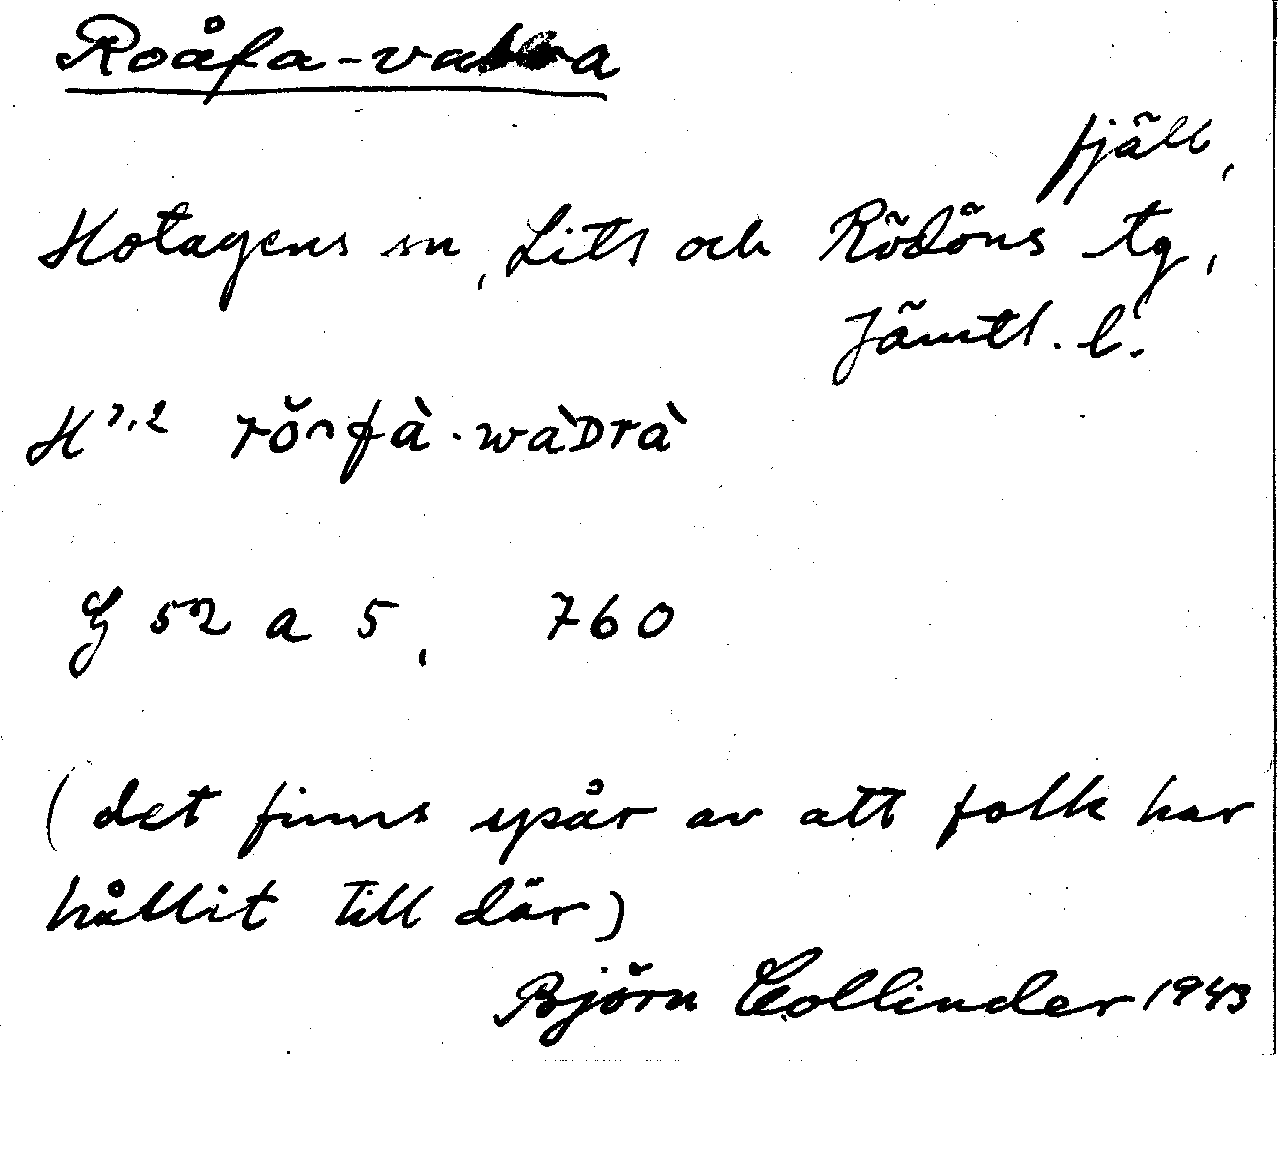 Roåfa-
fjäll,
Hotagens sn, Lits och Rödöns tg,
Jämtl. l.
H 3,2 rŏ∩fà·wàDrà
G 52 a 5, 760
(det finns spår av att folk har
hållit till där)
Björn Collinder 1943